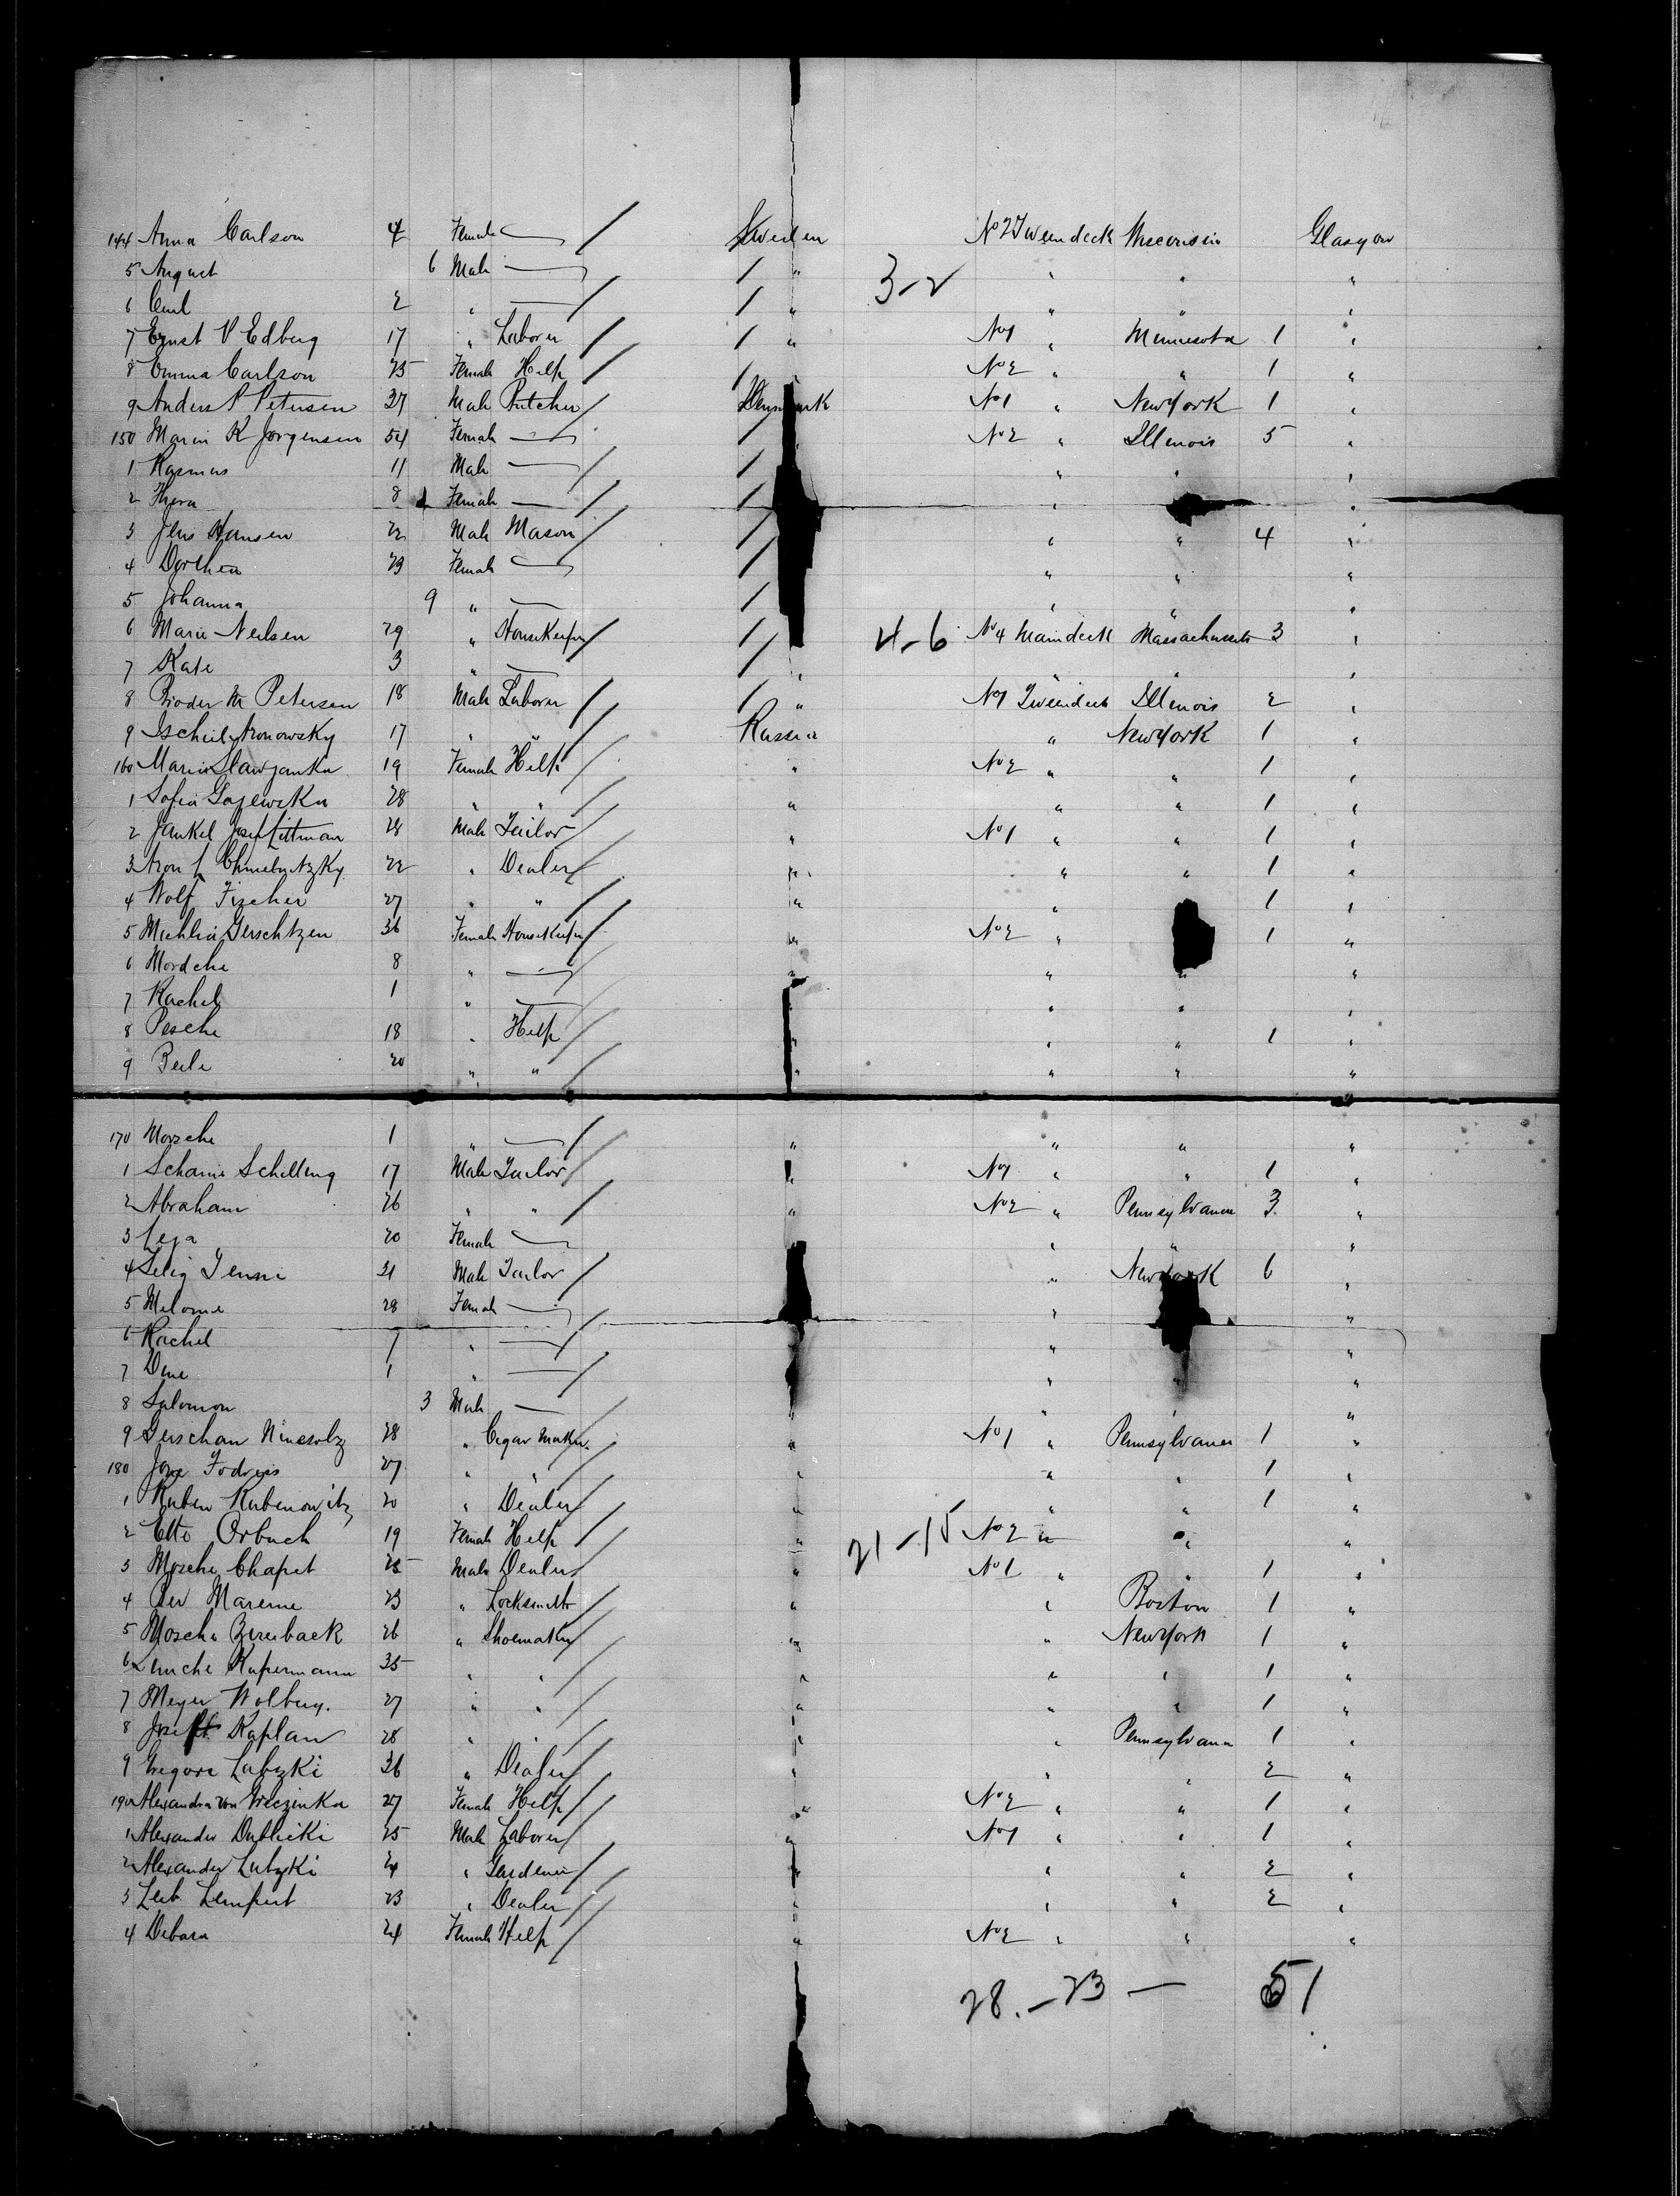 144 Anna Carlson 4 Female — Sweden No 2 Tweendeck Wisconsin Glasgow
5 August 6 Male — " " " "
6 Carl 2 " — " " " "
7 Ernst V Edberg 17 " Laborer " No 1 " Minnesota 1 "
8 Emma Carlson 25 Female Help " No 2 " " 1 "
9 Anders P Petersen 37 Male Butcher Denmark No 1 " New York 1 "
150 Maria K Jorgensen 54 Female — No 2 " Illinois 5 "
1 Rasmus 11 Male — " " "
2 Thyra 8 Female — " "
3 Jens Hansen 22 Male Mason " " 4 "
4 Dorthea 23 Female — " " "
5 Johanna 9 " — " " "
6 Marie Neilsen 29 " Housekeeper No 4 Maindeck Massachusetts 3 "
7 Kate 3 " — " " " "
8 Broder M Petersen 18 Male Laborer " No 1 Tweendeck Illinois 2 "
9 Aronowsky 17 " " Russia " New York 1 "
160 Maria 19 Female Help " No 2 " " 1 "
1 Sofia Gajewska 28 " " " " " 1 "
2 Jankel Josef Littman 28 Male Tailor " No 1 " " 1 "
3 Aron 22 " Dealer " " " 1 "
4 Wolf Fischer 27 " " " " 1 "
5 Gerschtzen 36 Female Housekeeper " No 2 " 1 "
6 Mordche 8 " — " " " "
7 Rachel 1 " — " " "
8 Pesche 18 " Help " " 1 "
9 Beile 20 " " " " " "
170 Morsche 1 " — " " " "
1 Schilling 17 Male Tailor " No 1 " " 1 "
2 Abraham 26 " " " No 2 " Pennsylvania 3 "
3 Leja 20 Female — " " "
4 Selig 31 Male Tailor " New York 6 "
5 28 Female — " "
6 Rachel 7 " — " "
7 Dine 1 " — " " "
8 Salomon 3 Male — " " " "
9 Gerschan 28 " Cigar Maker " No 1 " Pennsylvania 1 "
180 27 " " " " " 1 "
1 Ruben Rubenowitz 20 " Dealer " " " 1 "
2 Orbach 19 Female Help " No 2 " " "
3 Mosche Chapet 25 Male Dealer " No 1 " " 1 "
4 Ber 23 " Locksmith " " Boston 1 "
5 Mosche 26 " Shoemaker " " New York 1 "
6 Kupermann 35 " " " " " 1 "
7 Meyer Wolberg. 27 " " " " " 1 "
8 Josef Kaplan 28 " " " " Pennsylvania 1 "
9 Gregori 36 " Dealer " " " 2 "
190 Alexandra von 27 Female Help " No 2 " " 1 "
1 Alexander 25 Male Laborer " No 1 " " 1 "
2 Alexander 24 " Gardener " " " 2 "
3 Leib Lempert 23 " Dealer " " " 2 "
4 Debora 24 Female Help " No 2 " " "
3-2
4-6
21-15
28.-23 — 51